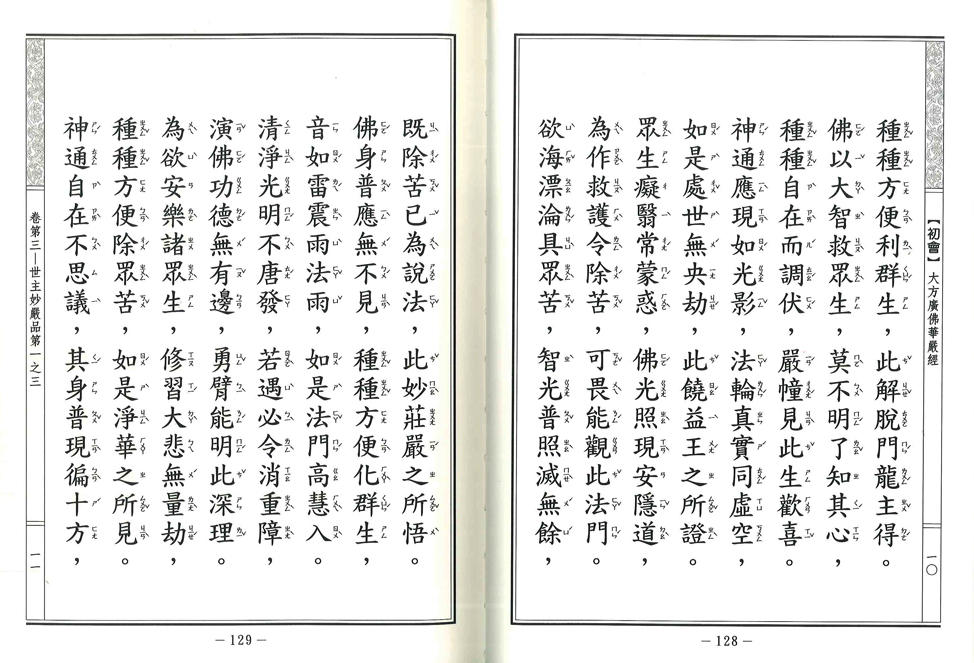 【初會】大方廣佛華嚴經
一〇
種種方便利群生，此解脫門龍主得。
佛以大智救眾生，莫不明了知其心，
種種自在而調伏，嚴幢見此生歡喜。
神通應現如光影，法輪真實同虛空，
如是處世無央劫，此饒益王之所證。
眾生癡翳常蒙惑，佛光照現安隱道，
為作救護令除苦，可畏能觀此法門。
欲海漂淪具眾苦，智光普照滅無餘，
－128－
既除苦已為說法，此妙莊嚴之所悟。
佛身普應無不見，種種方便化群生，
音如雷震雨法雨，如是法門高慧入。
清淨光明不唐發，若遇必令消重障，
演佛功德無有邊，勇臂能明此深理。
為欲安樂諸眾生，修習大悲無量劫，
種種方便除眾苦，如是淨華之所見。
神通自在不思議，其身普現徧十方，
卷第三－世主妙嚴品第一之三
一一
－129－